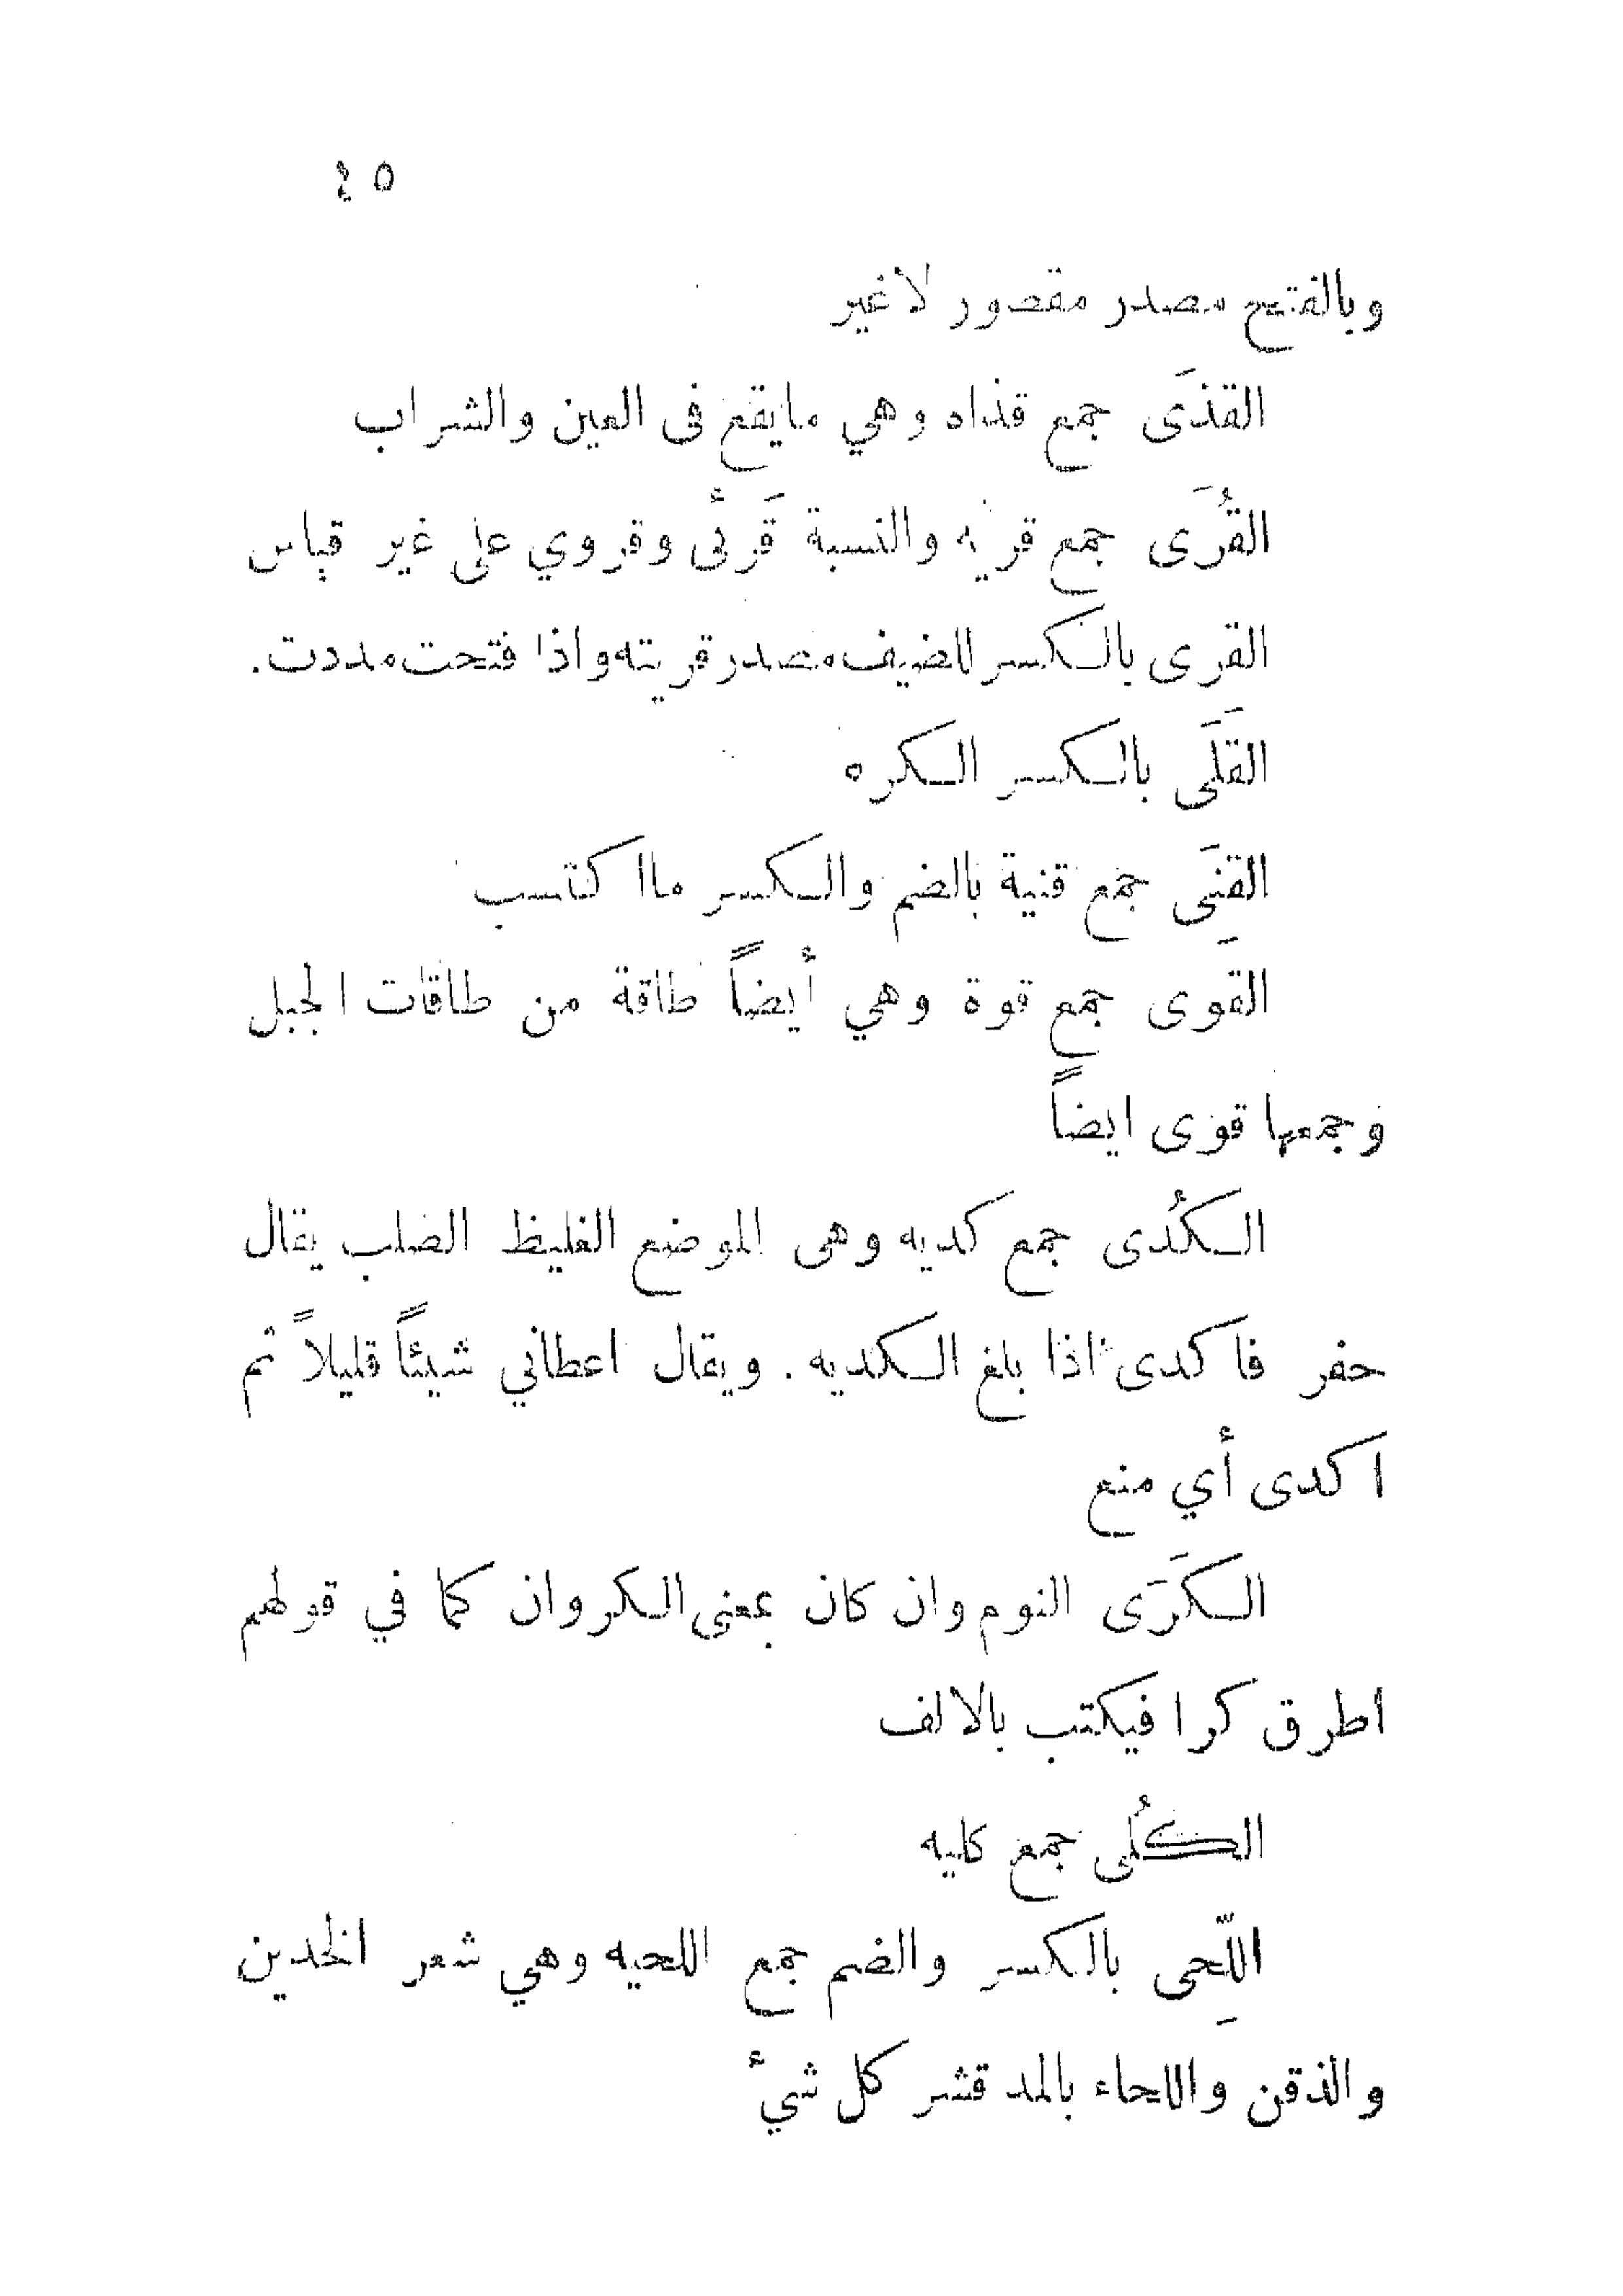 ٤٥
وبالفتح مصدر مقصور لاغير
القذَى جمع قذاه وهي مايقع فى العين والشراب
القُرَى جمع قريه والنسبة قَرئى وقروي على غير قياس
القرى بالكسر للضيف مصدر قريته واذا فتحت مددت.
القَلَى بالكسر الكره
القِنَى جمع قنية بالضم والكسر مااكتسب
القوى جمع قوة وهي أيضاً طاقة من طاقات الجبل
وجمعها قوى ايضاً
الكُدى جمع كديه وهى الموضع الغليظ الصلب يقال
حفر فاكدى اذا بلغ الكديه. ويقال اعطاني شيئاً قليلاً ثم
اكدى أي منع
الكرَى النوم وان كان بمعنى الكروان كما في قولهم
اطرق كرا فيكتب بالالف
الكُلى جمع كليه
اللِّحى بالكسر والضم جمع اللحيه وهي شعر الخدين
والذقن واللحاء بالمد قشر كل شيْ